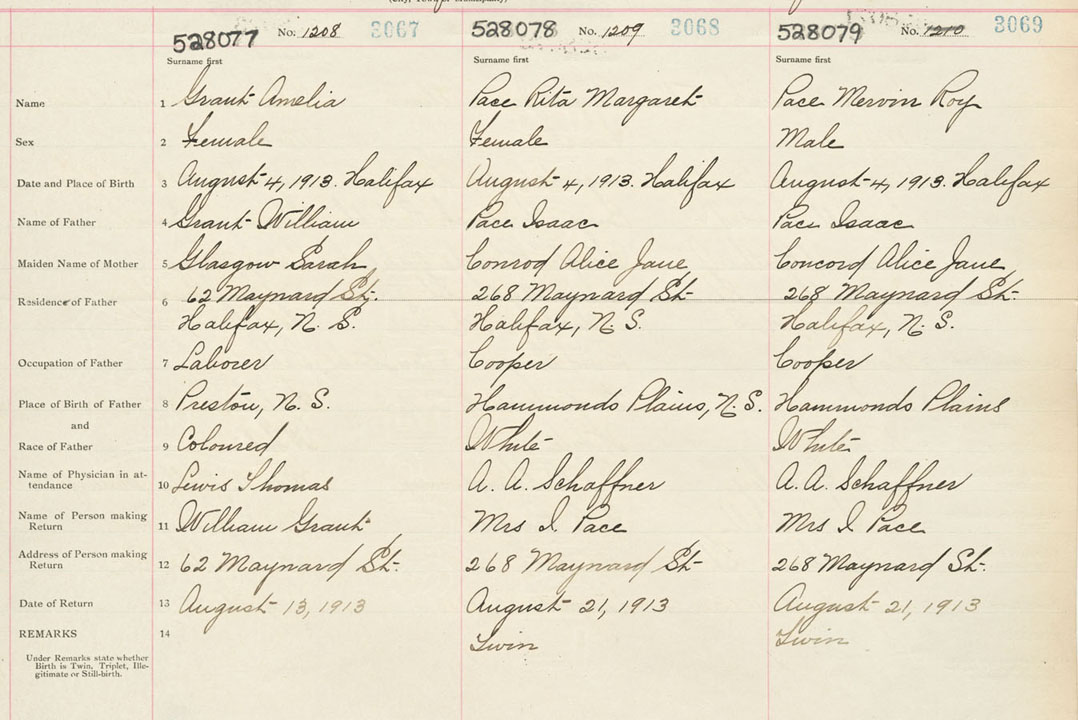 528077 No. 1208 3067 528078 No. 1209 3068 528079 No. 1210 3069
Surname first Surname first Surname first
Name 1 Grant Amelia Pace Rita Margaret Pace Mervin Roy
Sex 2 Female Female Male
Date and Place of Birth 3 August 4, 1913. Halifax August 4, 1913. Halifax August 4, 1913. Halifax
Name of Father 4 Grant William Pace Isaac Pace Isaac
Maiden Name of Mother 5 Glasgow Sarah Conrod Alice Jane Concord Alice Jane
Residence of Father 6 62 Maynard St. 268 Maynard St 268 Maynard St.
Halifax, N. S. Halifax, N. S. Halifax, N. S.
Occupation of Father 7 Laborer Cooper Cooper
Place of Birth of Father 8 Preston, N. S. Hammonds Plains, N. S. Hammonds Plains
and
Race of Father 9 Coloured White White
Name of Physician in at-
tendance 10 Lewis Thomas A. A. Schaffner A. A. Schaffner
Name of Person making
Return 11 William Grant Mrs I. Pace Mrs I Pace
Address of Person making
Return 12 62 Maynard St. 268 Maynard St 268 Maynard St.
Date of Return 13 August 13, 1913 August 21, 1913 August 21, 1913
REMARKS 14 Twin Twin
Under Remarks state whether
Birth is Twin, Triplet, Ille-
gitimate or Still-birth.